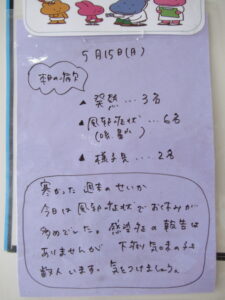 5月15日(月)
本日の病欠
▲ 発熱…3名
▲ 風邪症状…6名
▲ 様子見…2名
寒かった週末のせいか
今日は風邪の症状でお休みが
多めでした。感染症の報告は
ありませんが 下痢気味の子も
数人います。気をつけましょう。